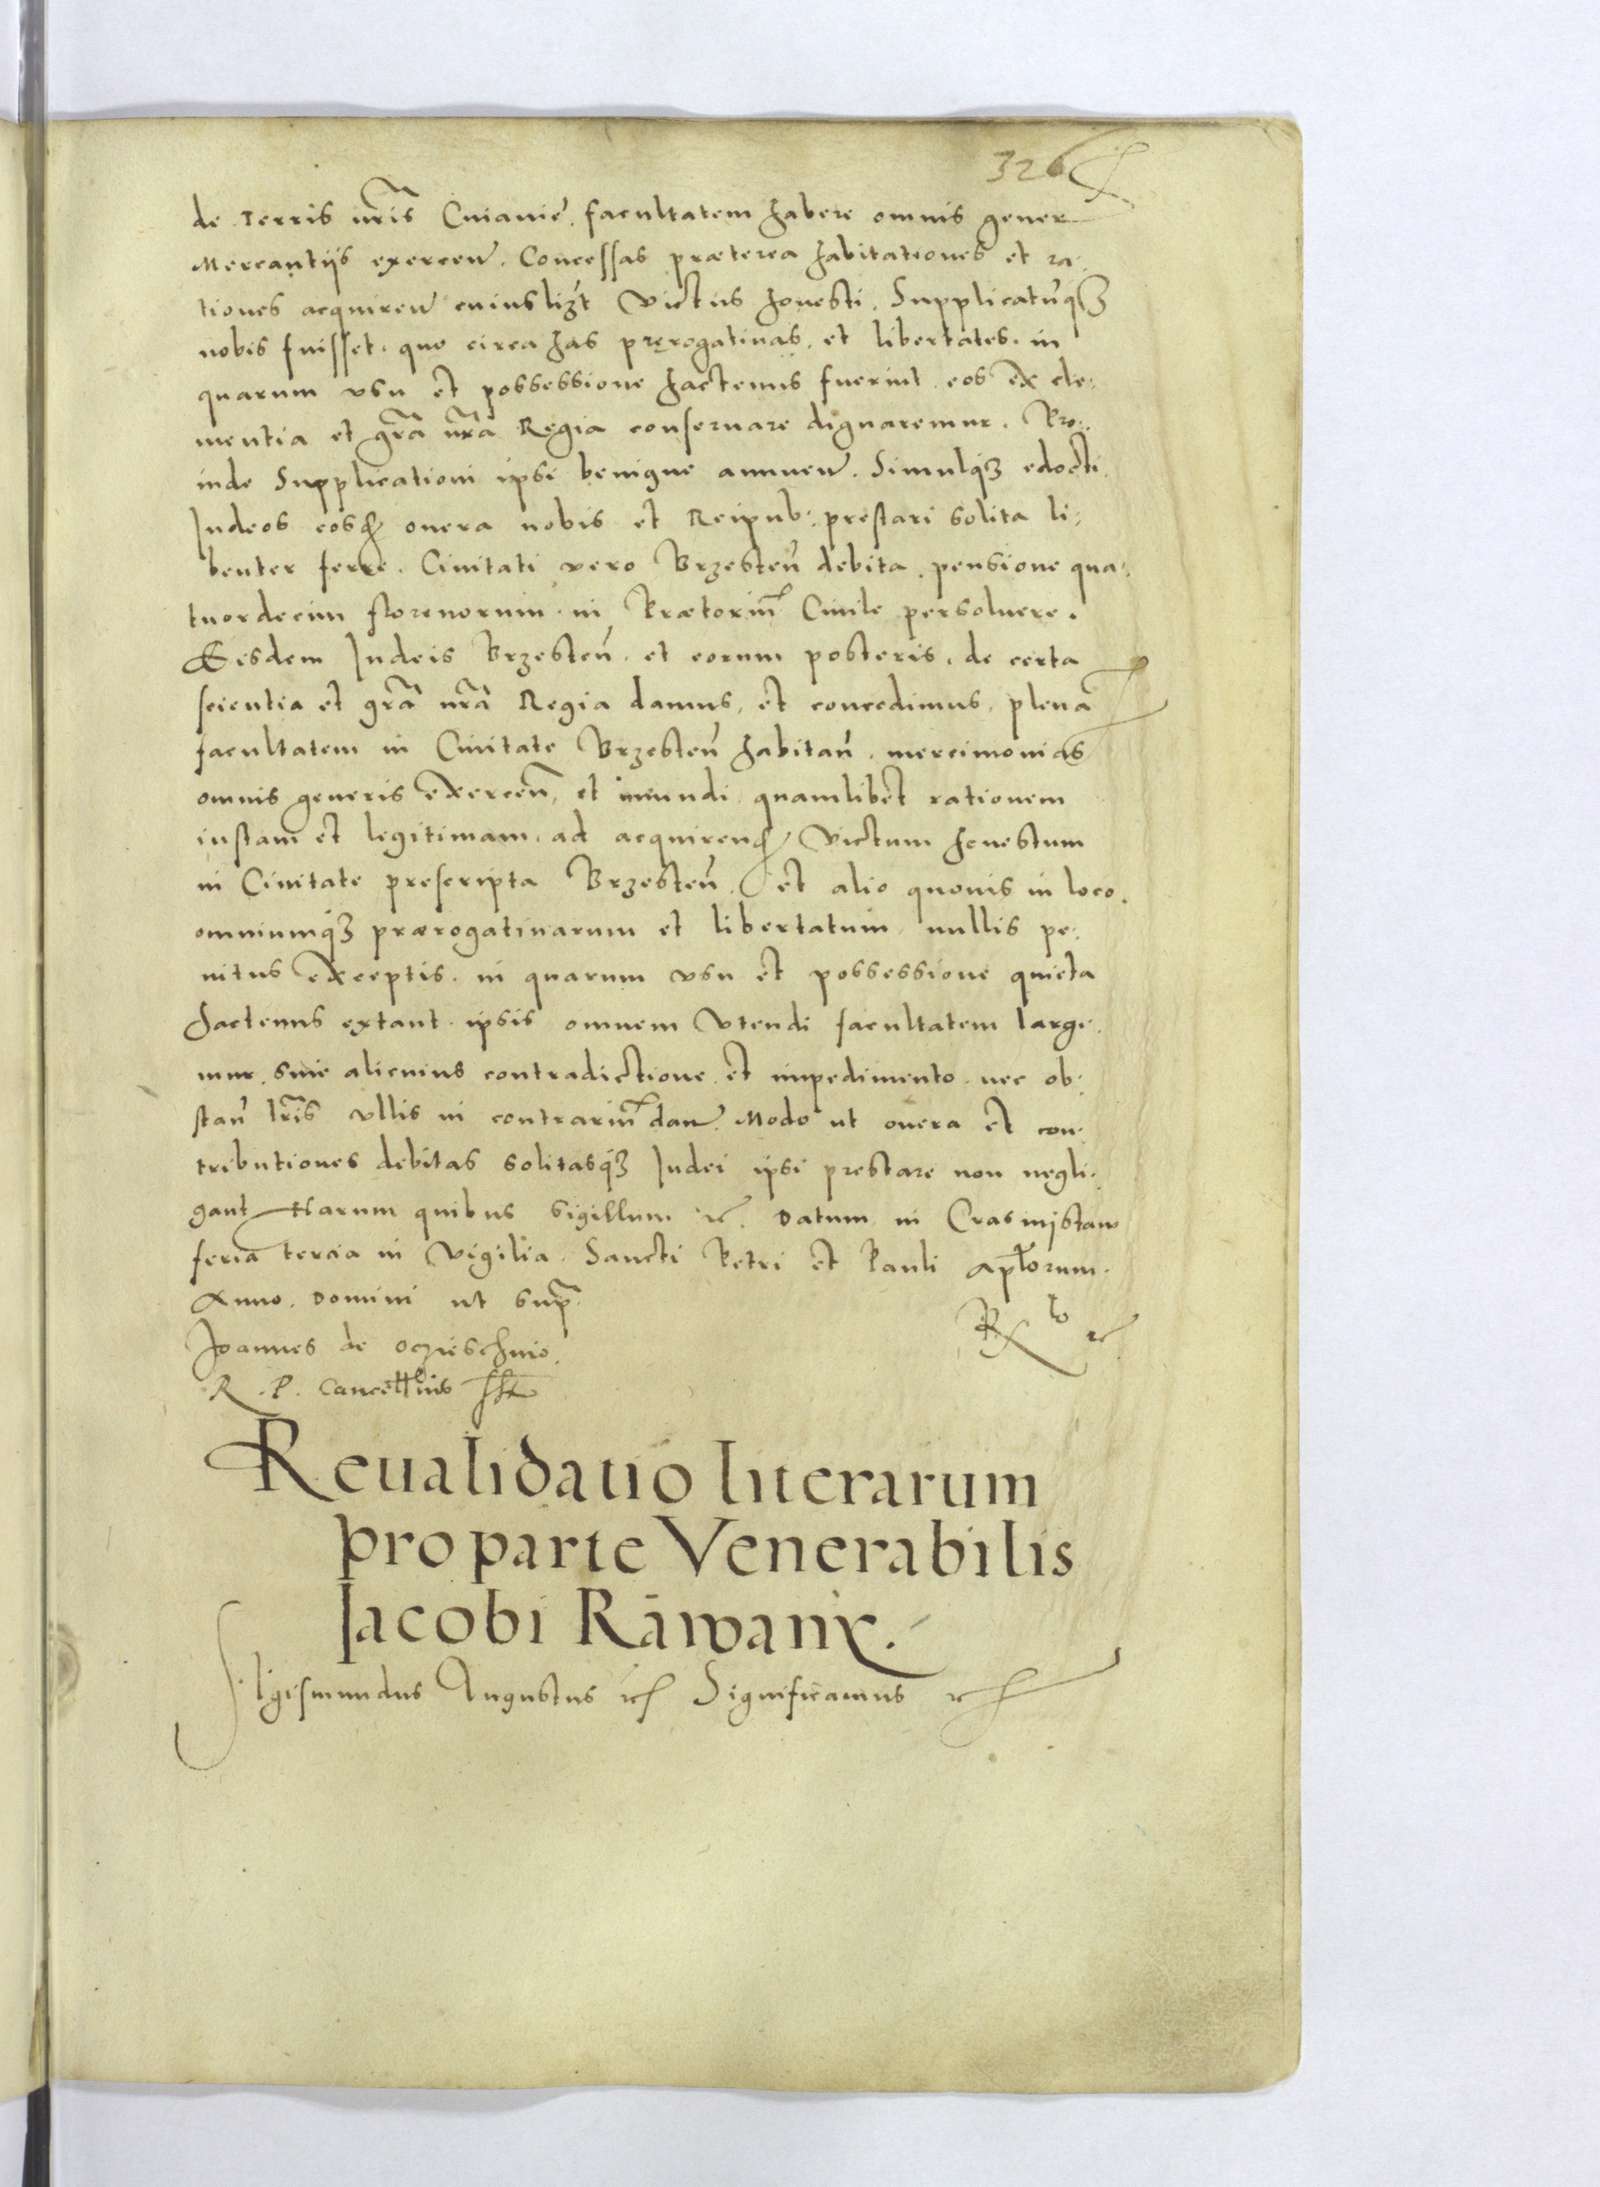 326
de Terris nr̃is Cuiauiẽ. facultatem habere omnis gener
Mercantijs exercen̄. Concessas præterea habitationes et ra-
tiones acquiren̄ cuiuslib3t victus honesti. Supplicatūq3
nobis fuisset. quo circa has pręrogatiuas. et libertates. in
quarum vsu et possessione hactenus fuerint. eos ex cle-
mentia et gr̃a nr̃a Regia conseruare dignaremur. Pro-
inde Supplicationi ipsi benigne annuen̄. Simulq3 edocti
Iudeos eosd onera nobis et Reipub: prestari solita li-
benter ferre. Ciuitati vero Brzesten̄ debita. pensione qua-
tuordecim florenorum. in Prætoriū Ciuile persoluere.
Eisdem Iudeis Brzesten̄. et eorum posteris. de certa
scientia et gr̃a nr̃a Regia damus, et concedimus, plenā
facultatem in Ciuitate Brzesten̄ habitan̄. mercimonias
omnis generis exercen̄, et ineundi quamlibet rationem
iustam et legitimam. ad acquirend victum honestum
in Ciuitate prescripta Brzesten̄. et alio quouis in loco.
omniumq3 prærogatiuarum et libertatum nullis pe-
nitus exceptis. in quarum vsu et possessione quieta
hactenus extant. ipsis omnem vtendi facultatem large-
mur. sine alicuius contradictione. et impedimento. nec ob-
stan̄ lr̃is vllis in contrariū dan̄. Modo ut onera et con-
tributiones debitas solitasq3 Iudei ipsi prestare non negli-
gant Harum quibus sigillum rc. Datum in Crasnijstaw
feria tercia in Vigilia. Sancti Petri et Pauli aplorum.
Anno. Domini ut supra.
Joannes de Oczieschino.
R. P. Cancellius sst
Reualidatio literarum
pro parte Venerabilis
Jacobi Rawanx.
Sigismundus Augustus rc Significamus rc